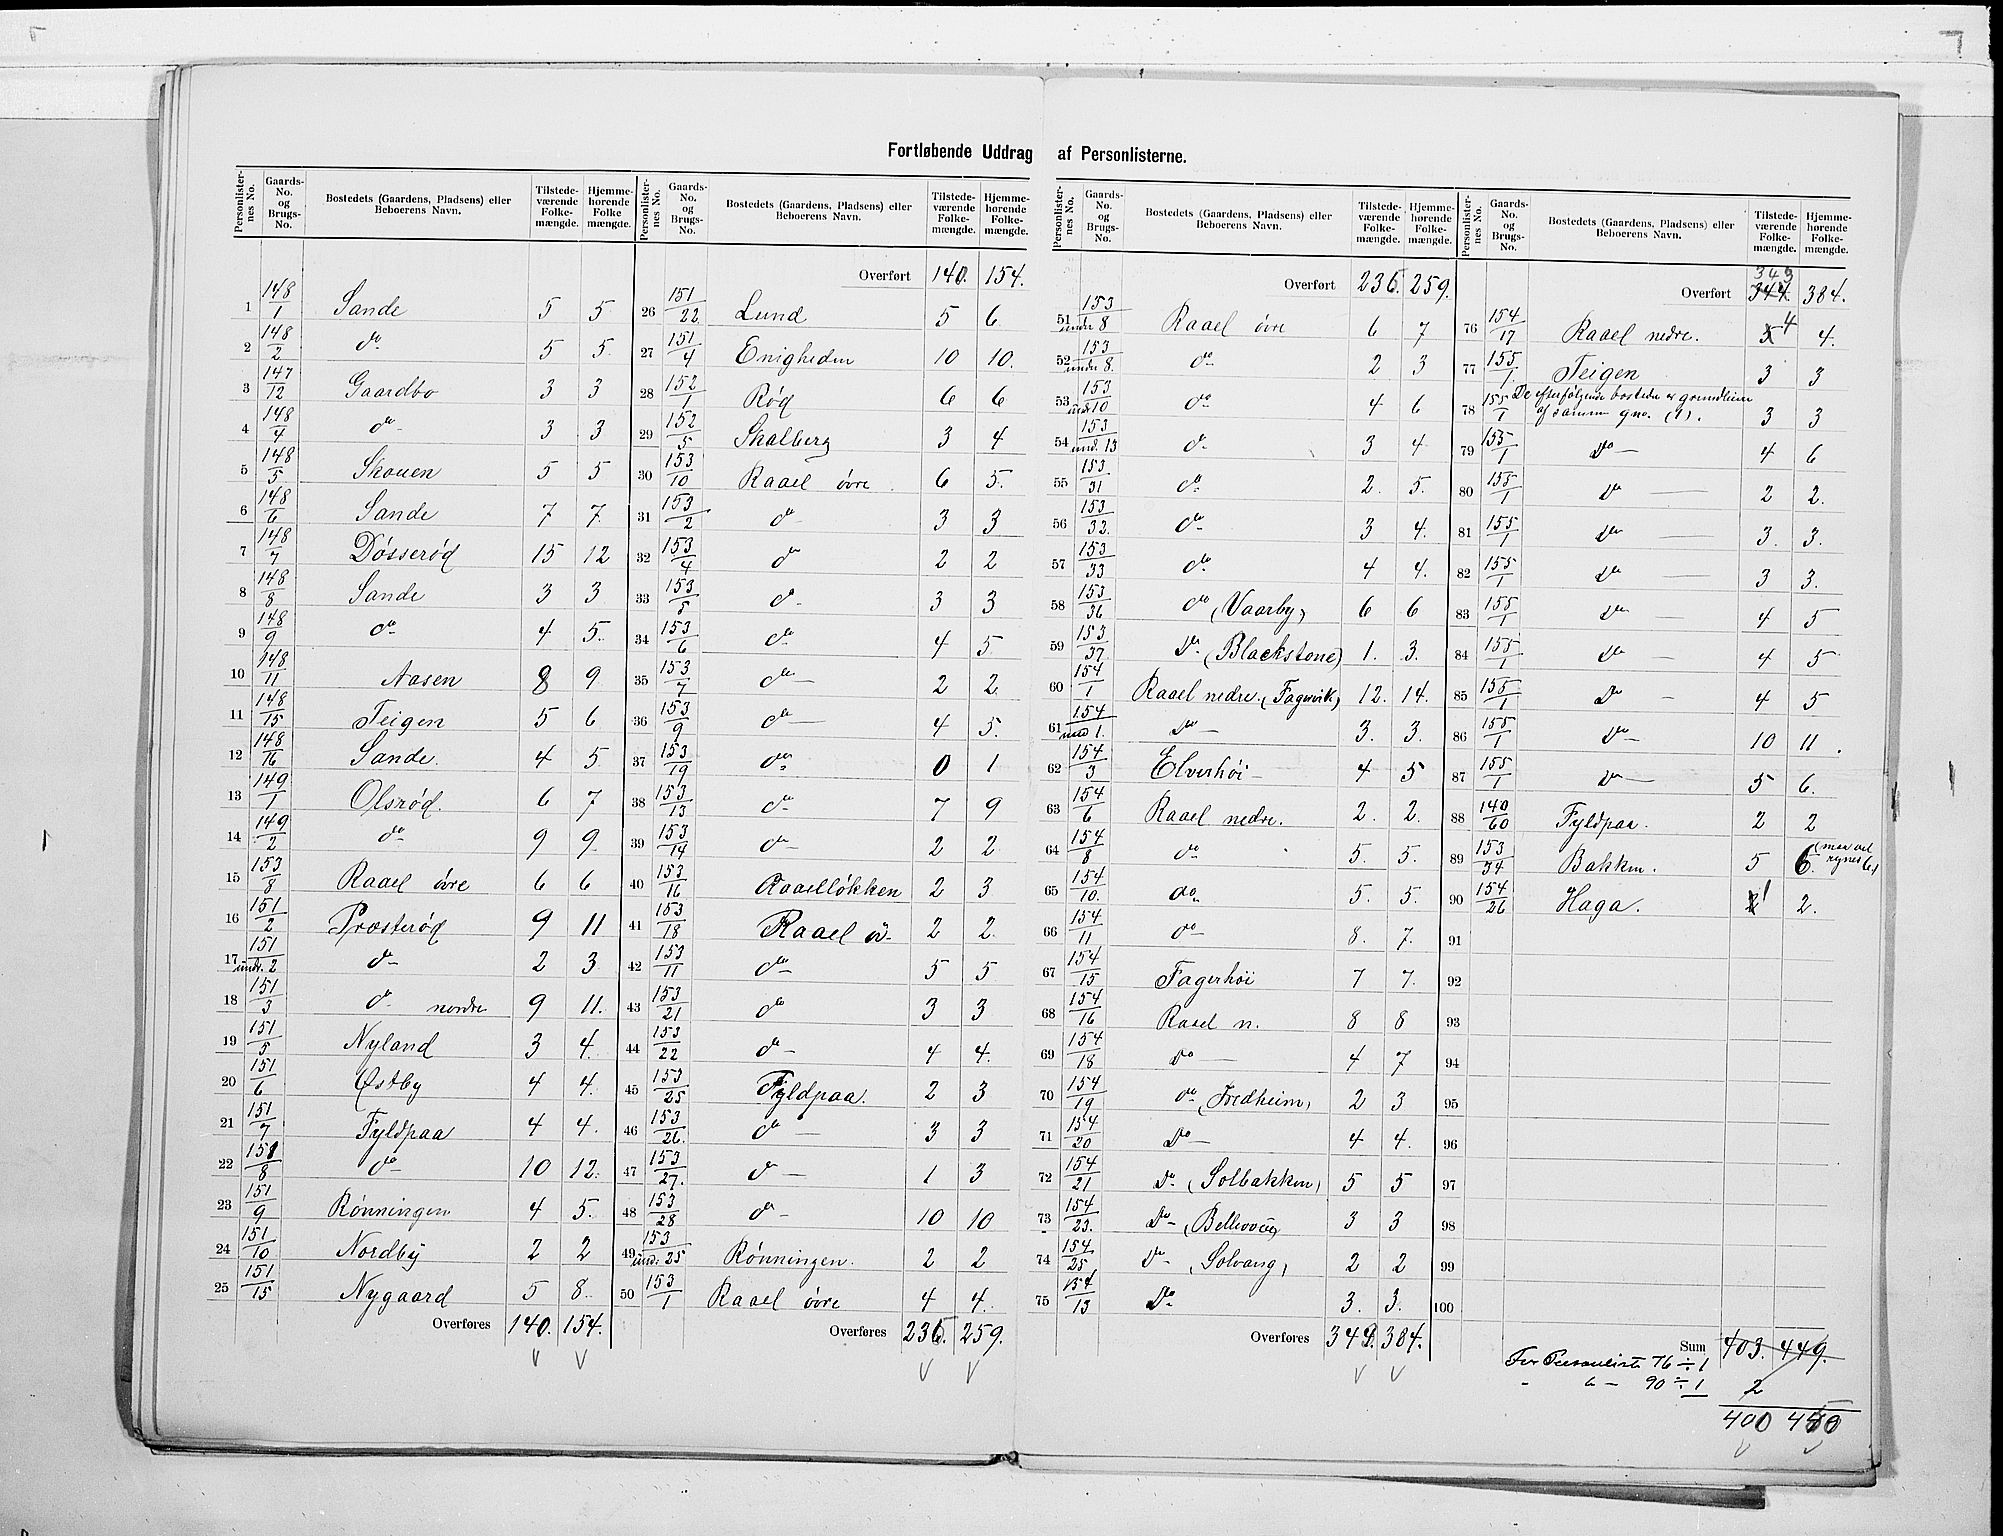 Fortløbende Uddrag af Personlisterne.
Personlisternes No. | Gaards-No. og Brugs-No. | Bostedets (Gaardens, Pladsens) eller Beboerens Navn. | Tilstedeværende Folkemængde. | Hjemmehørende Folkemængde.
1 148/1 Sande 5 5
2 148/2 do 5 5
3 147/12 Gaardbo 3 3
4 148/4 do 3 3
5 148/5 Skouen 5 5
6 148/6 Sande 7 7
7 148/7 Døsserød 15 12
8 148/8 Sande 3 3
9 148/9 do 4 5
10 148/11 Aasen 8 9
11 148/15 Teigen 5 6
12 148/16 Sande. 4 5
13 149/1 Olsrød. 6 7
14 149/2 do 9 9
15 153/8 Raael øvre 6 6
16 151/2 Præsterød 9 11
17 151/undr. 2 do 2 3
18 151/3 do nordre 9 11.
19 151/5 Nyland 3 4
20 151/6 Østby 4 4.
21 151/7 Fyldpaa 4 4.
22 151/8 do 10 12.
23 151/9 Rønningen 4 5.
24 151/10 Nordby 2 2
25 151/15 Nygaard 5 8
Overføres 140. 154.
Personlisternes No. | Gaards-No. og Brugs-No. | Bostedets (Gaardens, Pladsens) eller Beboerens Navn. | Tilstedeværende Folkemængde. | Hjemmehørende Folkemængde.
Overført 140. 154.
26 151/22 Lund 5 6
27 151/4 Enigheden 10 10.
28 152/1 Rød 6 6
29 152/5 Skalberg 3 4
30 153/10 Raael øvre 6 5.
31 153/2 do 3 3
32 153/4 do 2 2
33 153/5 do 3 3
34 153/6 do 4 5
35 153/7 do 2 2
36 153/9 do 4 5.
37 153/19 do 0 1
38 153/13 do 7 9
39 153/14 do 2 2
40 153/16 Raaelløkken 2 3
41 153/18 Raael ø. 2 2.
42 153/11 do 5 5
43 153/21 do 3 3
44 153/22 do 4 4.
45 153/25 Fyldpaa. 2 3
46 153/26. do 3 3
47 153/27. do 1 3
48 153/28 do 10 10
49 153/und. 25 Rønningen. 2 2
50 153/1 Raael øvre 4 4.
Overføres 236. 259.
Personlisternes No. | Gaards-No. og Brugs-No. | Bostedets (Gaardens, Pladsens) eller Beboerens Navn. | Tilstedeværende Folkemængde. | Hjemmehørende Folkemængde.
Overført 236. 259.
51 153/under 8 Raael øvre 6 7
52 153/under 8. do 2 3
53 153/und 10 do 4 6
54 153/und. 13 do 3 4
55 153/31 do 2. 5.
56 153/32. do 3 4.
57 153/33 do 4 4.
58 153/36 do (Vaarby) 6 6
59 153/37 Do (Blackstone) 1. 3.
60 154/1 Raael nedre. (Fagervik) 12. 14.
61 154/und 1. Do 3. 3.
62 154/3 Elverhøi 4 5
63 154/6 Raael nedre. 2. 2.
64 154/8 do 5. 5.
65 154/10. do 5. 5.
66 154/11 do 8. 7.
67 154/15 Fagerhøi 7 7.
68 154/16 Raael n. 8 8
69 154/18 Do 4 7
70 154/19 do (Fredheim) 2 3
71 154/20 Do 4 4.
72 154/21 Do (Solbakken) 5 5
73 154/23. Do (Bellevoue) 3 3
74 154/25 Do (Solvang) 2 2
75 154/13 Do 3. 3.
Overføres 349. 384.
Personlisternes No. | Gaards-No. og Brugs-No. | Bostedets (Gaardens, Pladsens) eller Beboerens Navn. | Tilstedeværende Folkemængde. | Hjemmehørende Folkemængde.
349
Overført 344. 384.
76 154/17 Raael nedre. 5 4 4.
77 155/1. Teigen 3 3
78 155/1 De efterfølgende bosteder er grundleiere af samme gno. (1). 3 3
79 155/1 Do 4 6
80 155/1 Do 2 2.
81 155/1 Do 3. 3.
82 155/1 Do 3 3.
83 155/1 Do 4 5
84 155/1 Do 4 5
85 155/1 Do 4 5
86 155/1 Do 10 11.
87 155/1 Do 5 6.
88 140/60 Fyldpaa. 2 2
89 153/34 Bakken. 5 6.
90 154/26 Haga. 2 1 2.
91
92
93
94
95
96
97
98
99
100
Sum 403. 449.
For Personliste 76 ÷ 1
" " 90 ÷ 1 2
400 450